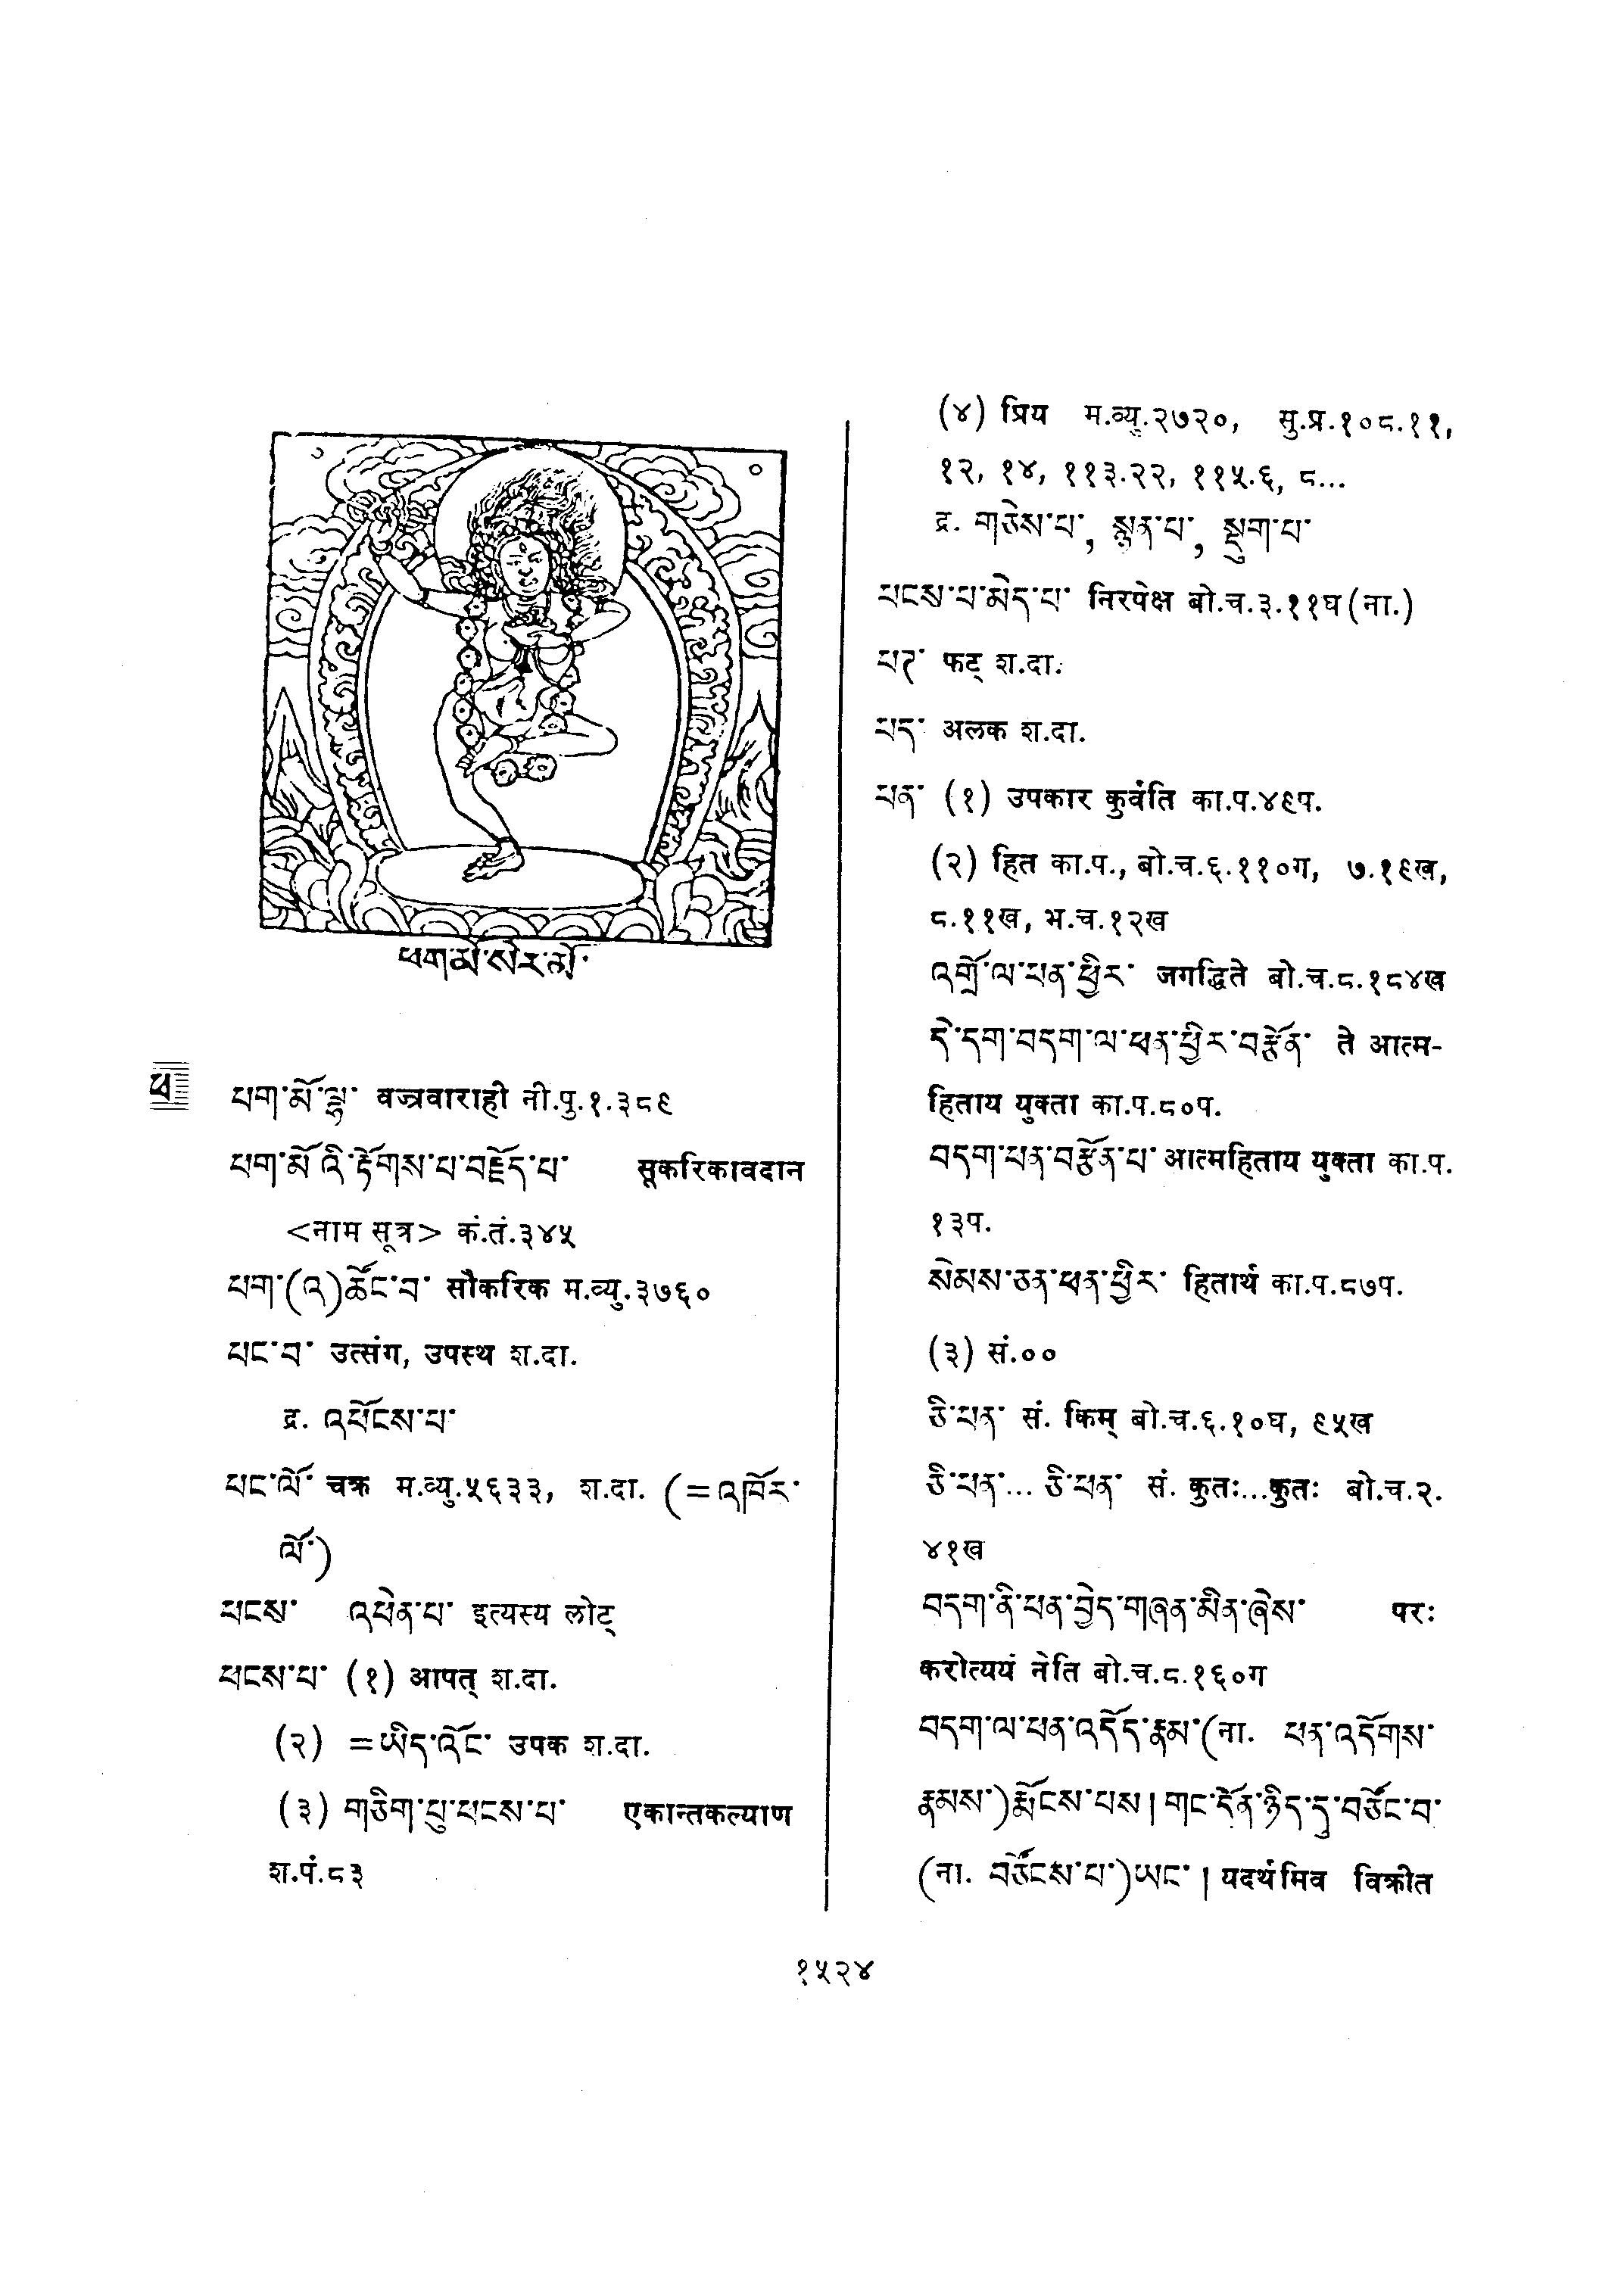 ཕག་མོ་སེར་མོ་
ཕ
ཕག་མོ་ལྔ་ वज्रवाराही नी.पु.१.३८९
ཕག་མོ་འི་རྟོགས་པ་བརྗོད་པ་ सूकरिकावदान
<नाम सूत्र> कं.तं.३४५
ཕག་(འ)ཚོང་བ་ सौकरिक म.व्यु.३७६०
ཕང་བ་ उत्संग, उपस्थ श.दा.
द्र. འཕོངས་པ་
ཕང་ལོ་ चक्र म.व्यु.५६३३, श.दा. (=འཁོར་
ལོ་)
ཕངས་ འཕེན་པ་ इत्यस्य लोट्
ཕངས་པ་ (१) आपत् श.दा.
(२) =ཡིད་འོང་ उपक श.दा.
(३) གཅིག་ཏུ་ཕངས་པ་ एकान्तकल्याण
श.पं.८३
(४) प्रिय म.व्यु.२७२०, सु.प्र.१०८.११,
१२, १४, ११३.२२, ११५.६, ८...
द्र. གཅེས་པ་, སྙན་པ་, སྡུག་པ་
ཕངས་པ་མེད་པ་ निरपेक्ष बो.च.३.११घ(ना.)
ཕཊ་ फट् श.दा.
ཕད་ अलक श.दा.
ཕན་ (१) उपकार कुर्वंति का.प.४९प.
(२) हित का.प., बो.च.६.११०ग, ७.१९ख,
८.११ख, भ.च.१२ख
འགྲོ་ལ་ཕན་ཕྱིར་ जगद्धिते बो.च.८.१८४ख
དེ་དག་བདག་ལ་ཕན་ཕྱིར་བརྩོན་ ते आत्म-
हिताय युक्ता का.प.८०प.
བདག་ཕན་བརྩོན་པ་ आत्महिताय युक्ता का.प.
१३प.
སེམས་ཅན་ཕན་ཕྱིར་ हितार्थं का.प.८७प.
(३) सं.००
ཅི་ཕན་ सं. किम् बो.च.६.१०घ, ९५ख
ཅི་ཕན་... ཅི་ཕན་ सं. कुतः...कुतः बो.च.२.
४१ख
བདག་ནི་ཕན་བྱེད་གཞན་མིན་ཞེས་ परः
करोत्ययं नेति बो.च.८.१६०ग
བདག་ལ་ཕན་འདོད་རྣམ་(ना. ཕན་འདོགས་
རྣམས་)རྨོངས་པས། གང་དོན་ཉིད་དུ་བཙོང་བ་
(ना. བཙོངས་པ་)ཡང་། यदर्थमिव विक्रीत
१५२४